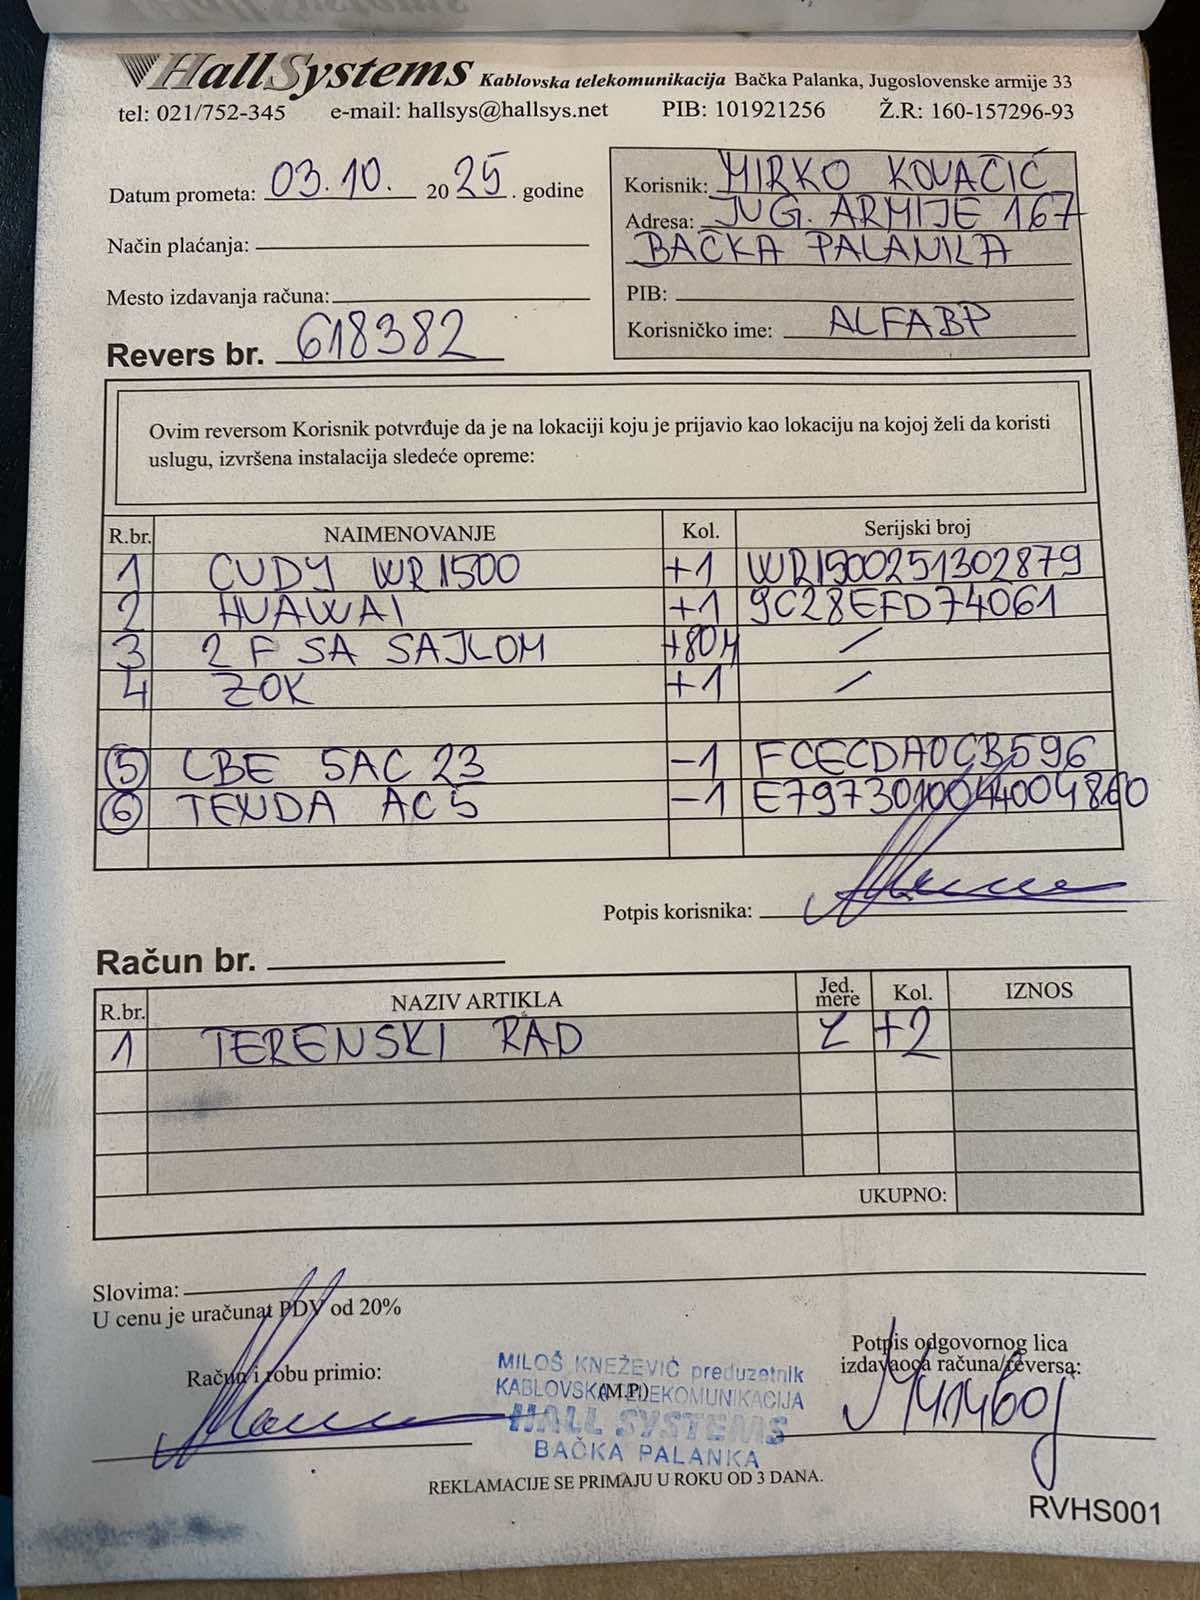 HallSystems Kablovska telekomunikacija Bačka Palanka, Jugoslovenske armije 33
tel: 021/752-345 e-mail: hallsys@hallsys.net PIB: 101921256 Ž.R: 160-157296-93
Datum prometa: 03.10. 2025. godine
Način plaćanja:
Mesto izdavanja računa:
Revers br. 618382
Korisnik: MIRKO KOVAČIĆ
Adresa: JUG. ARMIJE 167
BAČKA PALANKA
PIB:
Korisničko ime: ALFABP
Ovim reversom Korisnik potvrđuje da je na lokaciji koju je prijavio kao lokaciju na kojoj želi da koristi
uslugu, izvršena instalacija sledeće opreme:
R.br. NAIMENOVANJE Kol. Serijski broj
1 CUDY WR1500 +1 WR1500251302879
2 HUAWAI +1 9C28EFD74061
3 2 F SA SAJLOM +80M /
4 ZOK +1 /
5 LBE 5AC 23 -1 FCECDA0CB596
6 TENDA AC5 -1
Potpis korisnika:
Račun br.
R.br. NAZIV ARTIKLA Jed. mere Kol. IZNOS
1 TERENSKI RAD +2
UKUPNO:
Slovima:
U cenu je uračunat PDV od 20%
Račun i robu primio:
MILOŠ KNEŽEVIĆ preduzetnik
KABLOVSKA TELEKOMUNIKACIJA
(M.P.)
HALL SYSTEMS
BAČKA PALANKA
Potpis odgovornog lica
izdavaoca računa/reversa:
REKLAMACIJE SE PRIMAJU U ROKU OD 3 DANA.
RVHS001